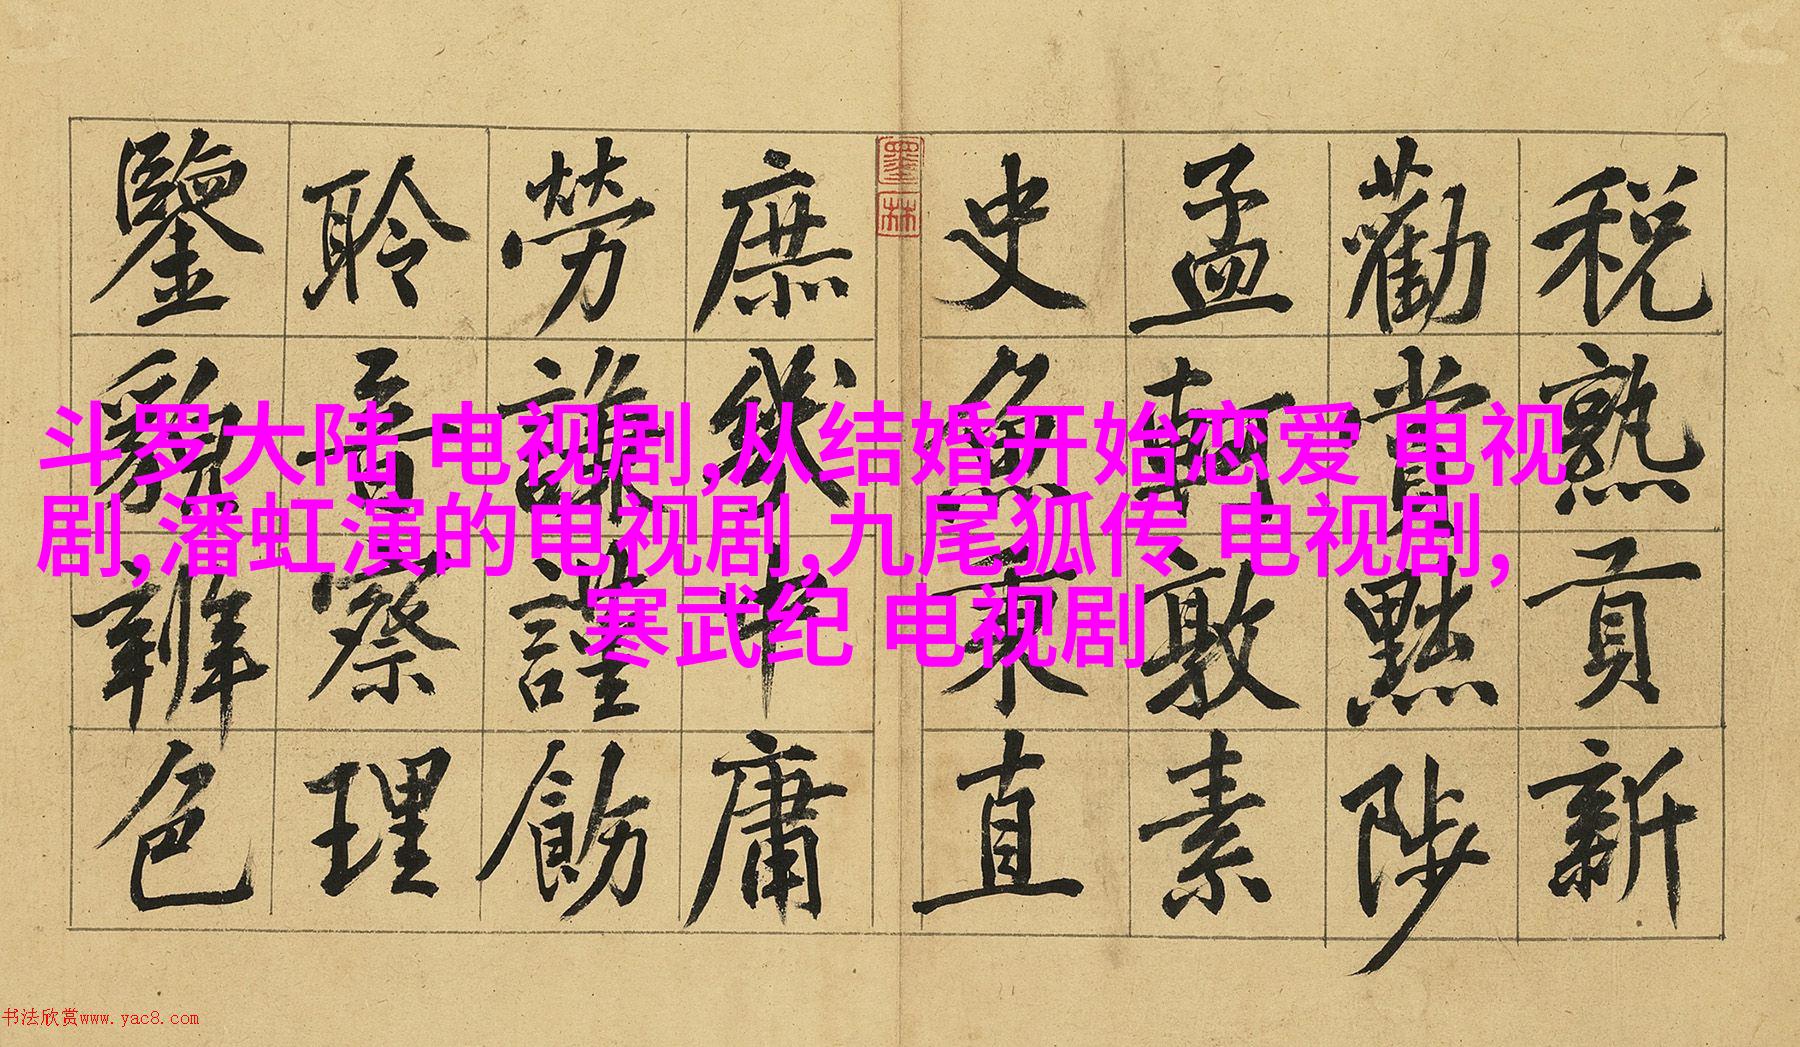 税熟貢新
勸賞黜陟
孟軻敦素
史魚秉直
墨林
庶幾中庸
勞謙謹飭
聆音察理
鑒貌辨色
斗罗大陆 电视剧,从结婚开始恋爱 电视
剧,潘虹演的电视剧,九尾狐传 电视剧,
寒武纪 电视剧
书法欣赏www.yac8.com